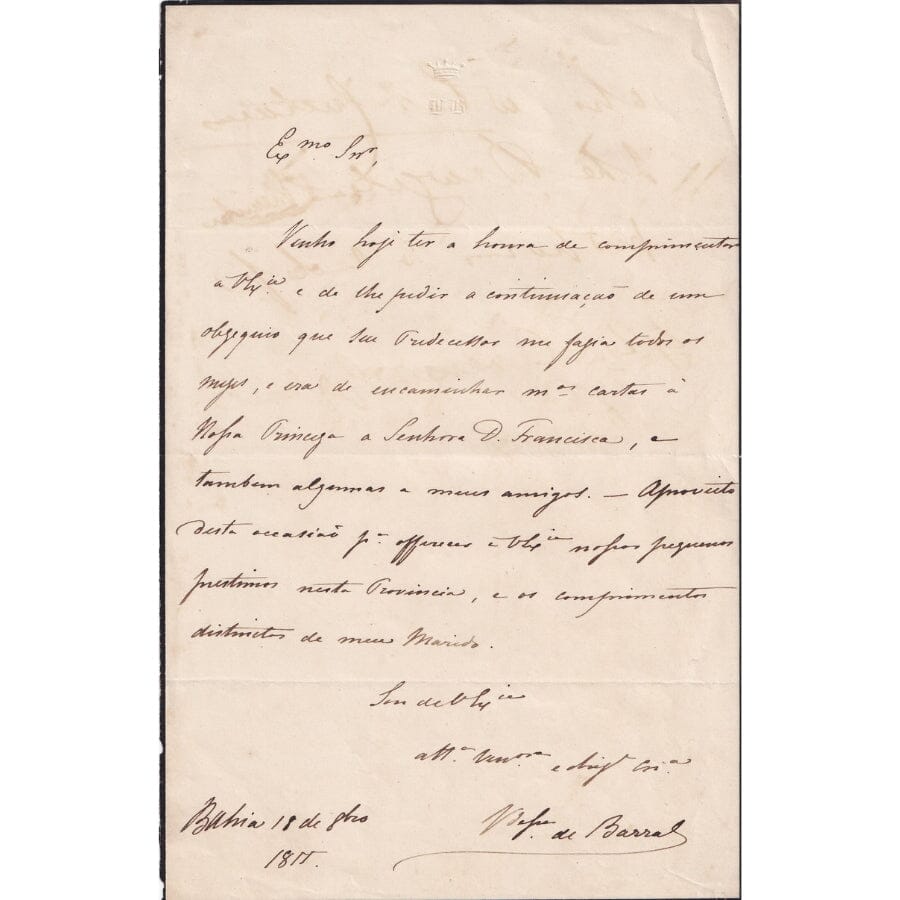 Ex.mo Snr,
Venho hoje ter a honra de comprimentar
a VEx.cia e de lhe pedir a continuação de um
obzequio que Seu Predecessor me fazia todos os
mezes, e era de encaminhar m.as cartas à
Nossa Princeza a Senhora D. Francisca, e
tambem algumas a meus amigos. — Aproveito
desta occasião p.a offerecer a VEx.cia nossos pequenos
prestimos nesta Provincia, e os comprimentos
distinctos de meu Marido.
Sou de VEx.cia
att.a Ven.ora e obrig.a Cri.a
Bahia 18 de 8bro
V.essa de Barral
1855.